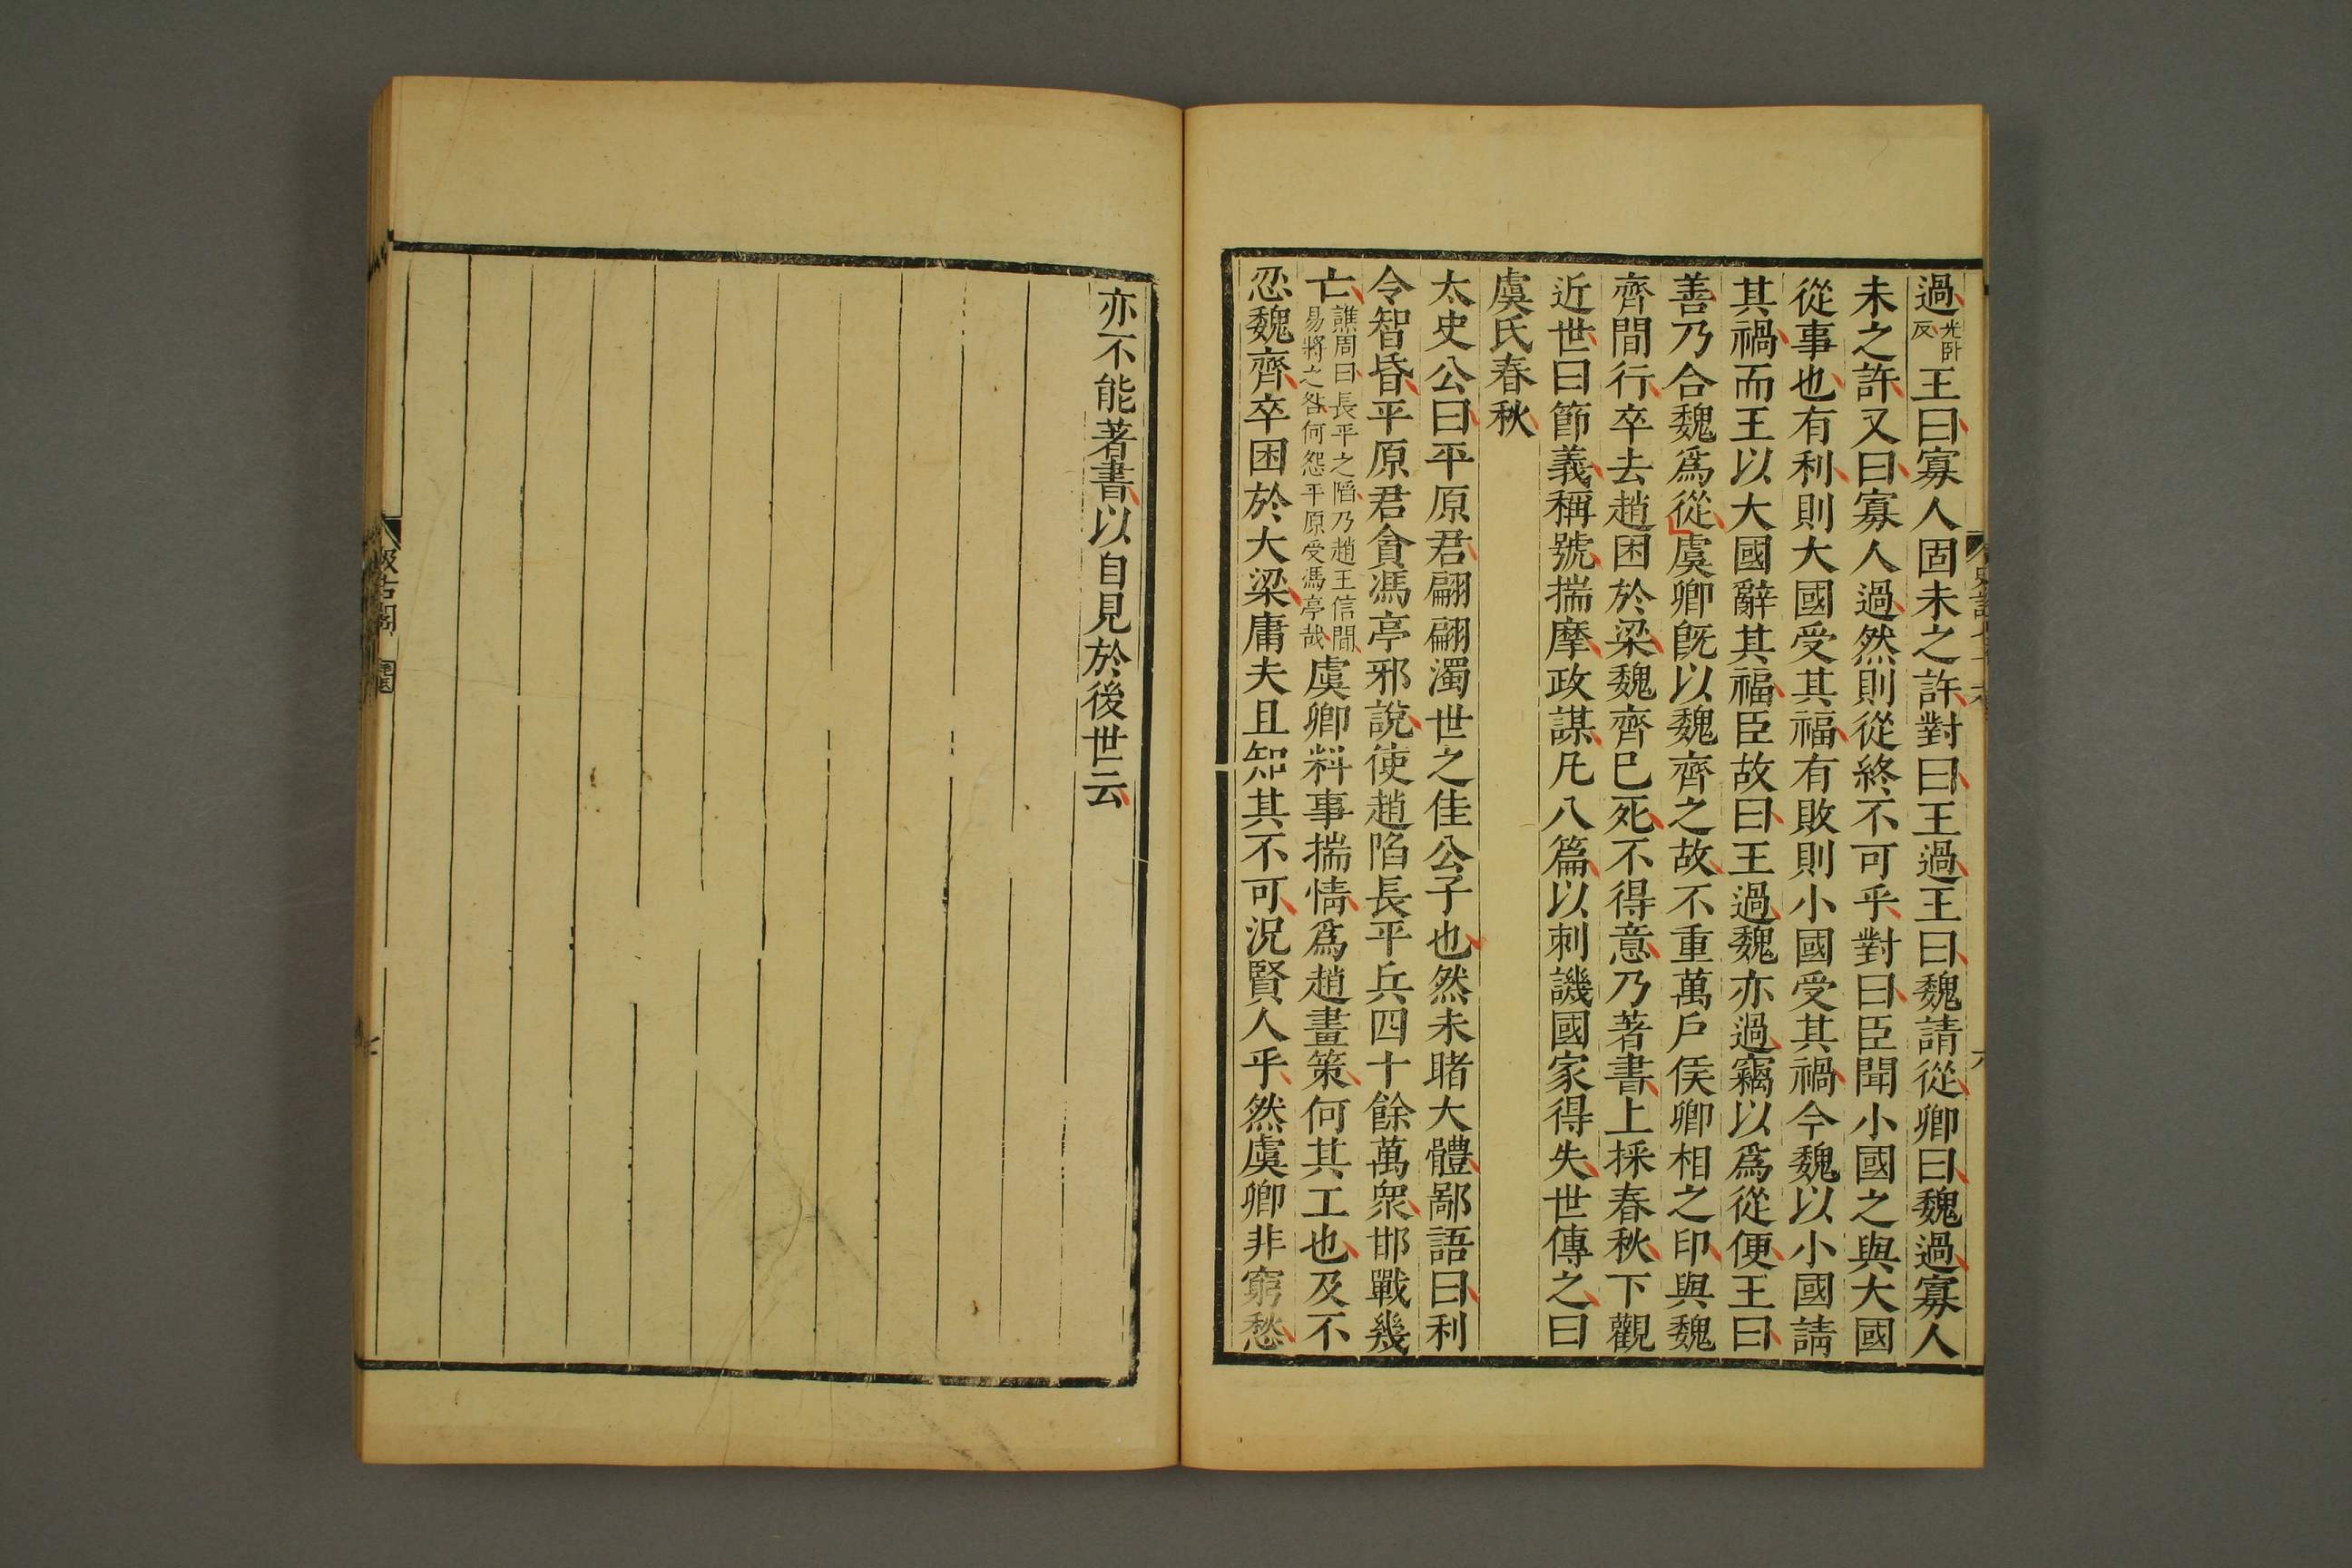 過光卧反王曰寡人固未之許對曰王過王曰魏請從卿曰魏過寡人
未之許又曰寡人過然則從終不可乎對曰臣聞小國之與大國
從事也有利則大國受其福有敗則小國受其禍今魏以小國請
其禍而王以大國辭其福臣故曰王過魏亦過竊以爲從便王曰
善乃合魏爲從虞卿旣以魏齊之故不重萬戶侯卿相之印與魏
齊間行卒去趙困於梁魏齊已死不得意乃著書上採春秋下觀
近世曰節義稱號揣摩政謀凡八篇以刺譏國家得失世傳之曰
虞氏春秋
太史公曰平原君翩翩濁世之佳公子也然未睹大體鄙語曰利
令智昏平原君貪馮亭邪說使趙陷長平兵四十餘萬衆邯戰幾
亡譙周曰長平之陷乃趙王信間易將之咎何怨平原受馮亭哉虞卿料事揣情爲趙畫策何其工也及不
忍魏齊卒困於大梁庸夫且知其不可況賢人乎然虞卿非窮愁
亦不能著書以自見於後世云